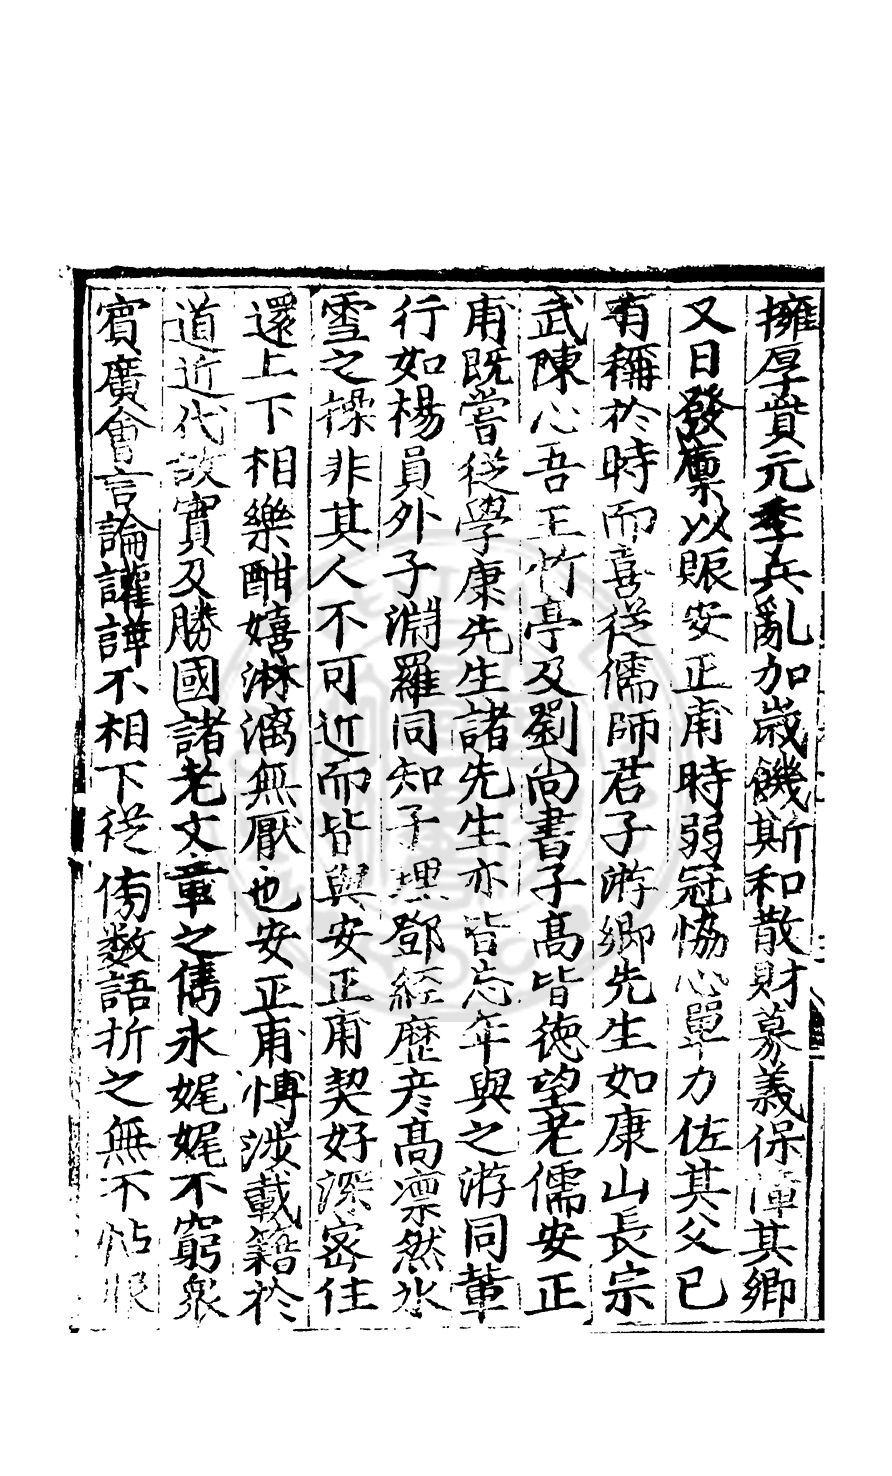 擁厚貲元季兵亂加歲饑斯和散財募義保障其鄉
又日發廩以賑安正甫時弱冠恊心單力佐其父已
有稱於時而喜從儒師君子游鄉先生如康山長宗
武陳心吾王竹亭及劉尚書子髙皆徳望老儒安正
甫既嘗從學康先生諸先生亦皆忘年與之游同輩
行如楊員外子淵羅同知子理鄧經歷彦髙凛然氷
雪之操非其人不可近而皆與安正甫契好深宻徃
還上下相樂酣嬉淋漓無厭也安正甫愽涉載籍於
道近代故實及勝國諸老文章之雋永娓娓不窮衆
賔廣會言論讙譁不相下從傍数語折之無不帖服